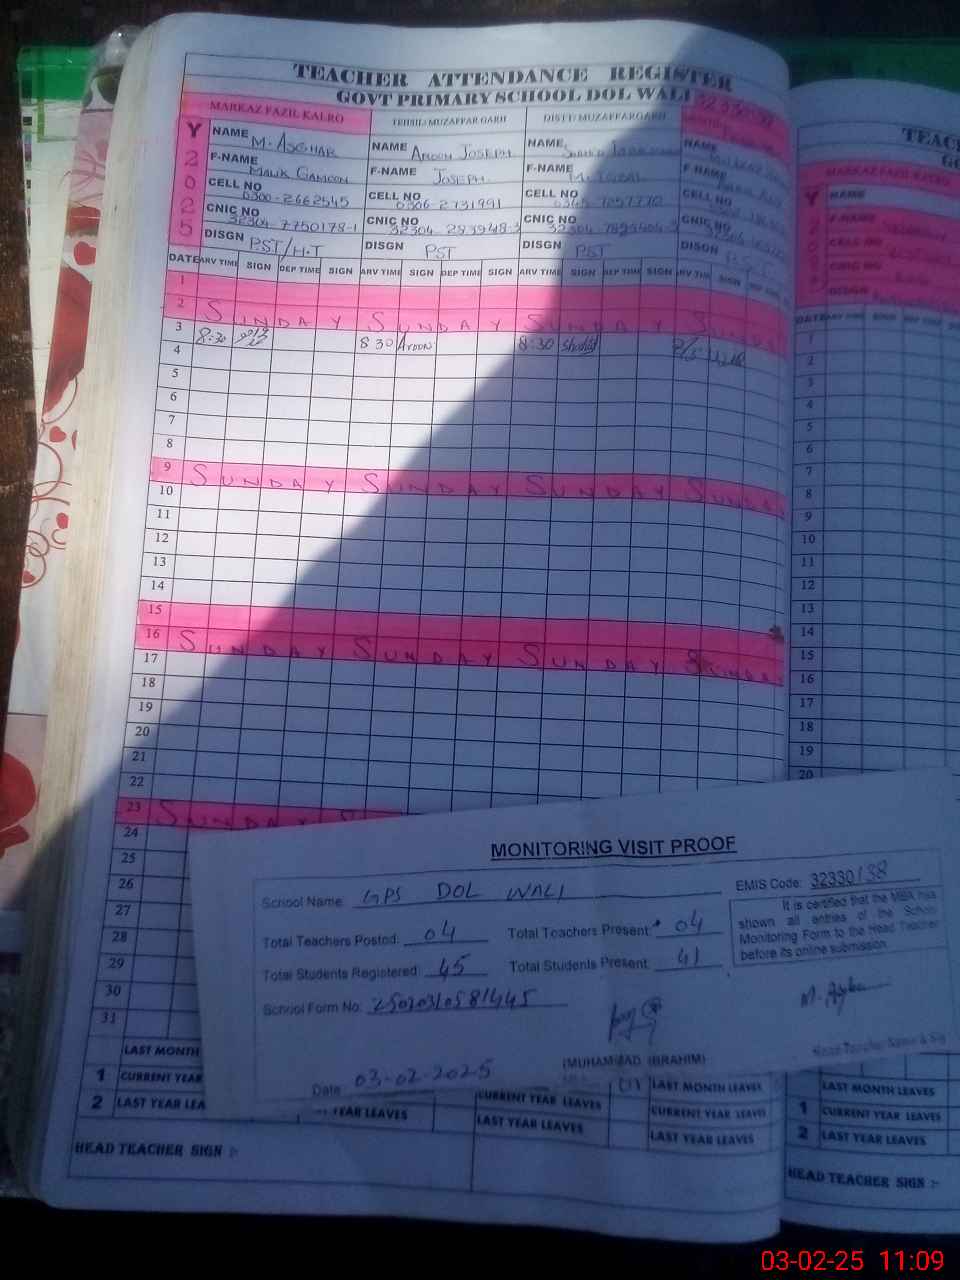 TEACHER ATTENDANCE REGISTER
GOVT PRIMARY SCHOOL DOL WALI
MARKAZ FAZIL KALRO TEHSIL: MUZAFFAR GARH DISTT: MUZAFFARGARH
Y 2 0 2 5
NAME M. ASGHAR NAME AROON JOSEPH NAME NAME
F-NAME MALIK GAMOON F-NAME JOSEPH F-NAME M. IQBAL F-NAME
CELL NO 0300-2662545 CELL NO 0306-2731991 CELL NO CELL NO
CNIC NO 32304-7750178-1 CNIC NO CNIC NO CNIC NO
DISGN PST/H.T DISGN PST DISGN PST DISGN
DATE ARV TIME SIGN DEP TIME SIGN ARV TIME SIGN DEP TIME SIGN ARV TIME SIGN DEP TIME SIGN ARV TIME SIGN DEP TIME
1
2 SUNDAY SUNDAY SUNDAY SUNDA
3 8:30 8 30 AROON 8:30
4
5
6
7
8
9 SUNDAY SUNDAY SUNDAY SUNDA
10
11
12
13
14
15
16 SUNDAY SUNDAY SUNDAY SUNDA
17
18
19
20
21
22
23 SUNDAY S
24
25
26
27
28
29
30
31
LAST MONTH
1 CURRENT YEAR
2 LAST YEAR LEA
HEAD TEACHER SIGN :-
MONITORING VISIT PROOF
School Name: GPS DOL WALI EMIS Code: 32330138
Total Teachers Posted: 04 Total Teachers Present: 04
Total Students Registered: 45 Total Students Present: 41
School Form No:
It is certified that the MEA has
shown all entries of the School
Monitoring Form to the Head Teacher
before its online submission.
M. Asghar
(MUHAMMAD IBRAHIM)
Head Teacher Name & Sig
Date 03-02-2025
YEAR LEAVES CURRENT YEAR LEAVES LAST MONTH LEAVES
LAST YEAR LEAVES CURRENT YEAR LEAVES
LAST YEAR LEAVES
MARKAZ FAZIL KALRO
Y
NAME
F-NAME
CELL NO
CNIC NO
DISGN
DATE
1
2
3
4
5
6
7
8
9
10
11
12
13
14
15
16
17
18
19
20
LAST MONTH LEAVES
1 CURRENT YEAR LEAVES
2 LAST YEAR LEAVES
HEAD TEACHER SIGN :-
03-02-25 11:09